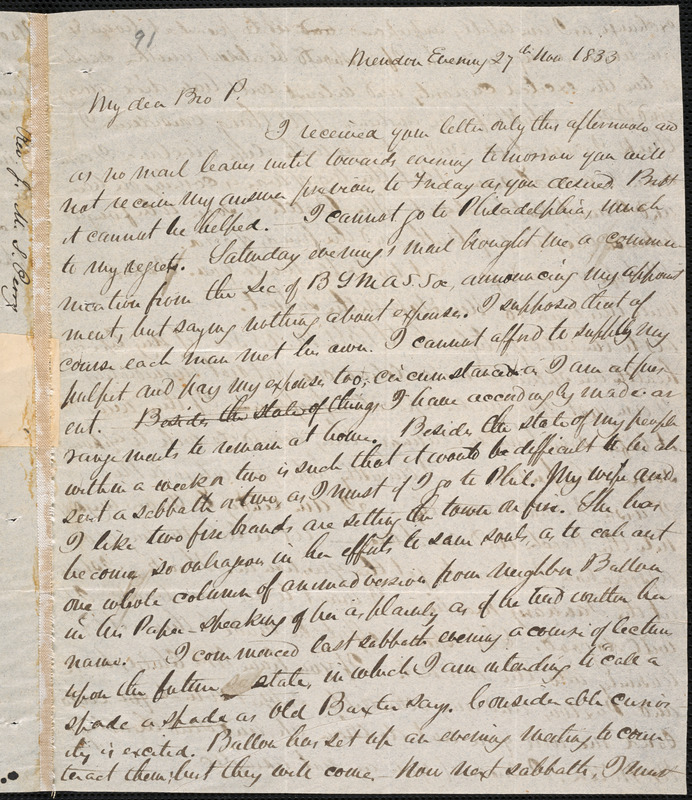 91
Mendon Evening 27th Nov 1833
My dear Bro P.
I received your letter only this afternoon and
as no mail leaves until towards evening tomorrow you will
not receive my answer previous to Friday as you desired. But
it cannot be helped. I cannot go to Philadelphia, much
to my regret. Saturday evening's mail brought me a commu-
nication from the Sec of B Y M A S. Soc, announcing my appoint
ment, but saying nothing about expenses. I supposed that of
course each man met his own. I cannot afford to supply my
pulpit and pay my expenses too, circumstanced as I am at pres
ent. Besides the state of things I have accordingly made ar
rangements to remain at home. Besides the state of my people
within a week or two is such that it would be difficult to be ab
sent a sabbath or two, as I must if I go to Phil. My wife and
I like two fire brands are setting the town on fire. She has
become so outrageous in her efforts to save souls, as to call out
one whole column of animadversion from neighbor Ballou
in his Paper - speaking of her as plainly as if he had written her
name. I commenced last sabbath evening a course of lectures
upon the future state, in which I am intending to call a
spade a spade as old Baxter says. Considerable curios
ity is excited. Ballou has set up an evening meeting to coun
teract them; but they will come - Now next sabbath, I must
Rev. G. S. Perry